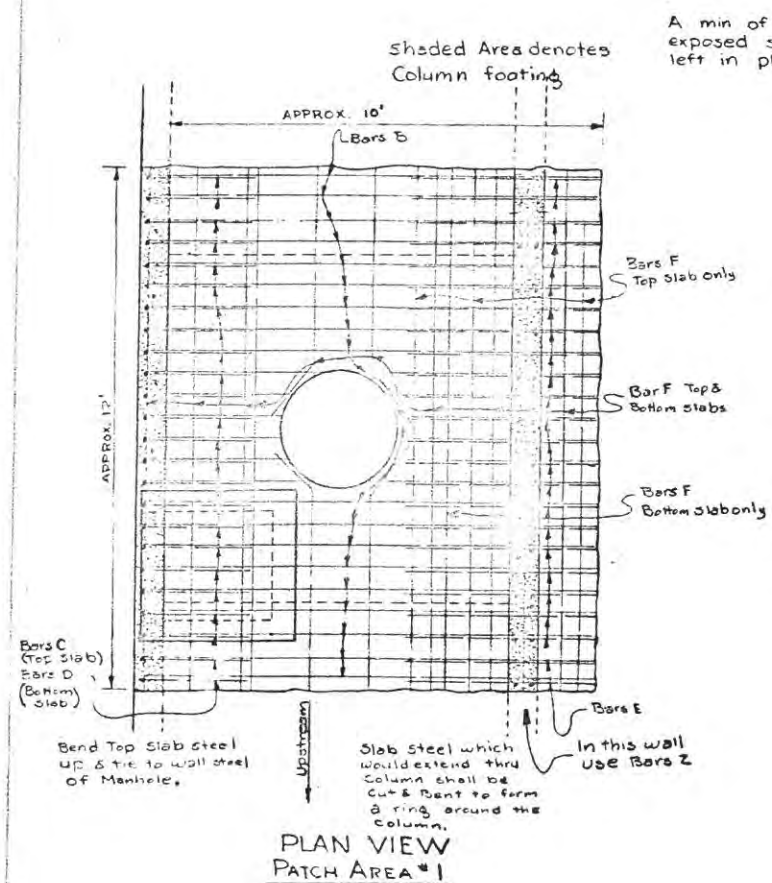 A min of
exposed s
left in pl
Shaded Area denotes
Column footing
APPROX. 10'
Bars B
Bars F
Top Slab only
Bar F Top &
Bottom Slabs
APPROX. 12'
Bars F
Bottom Slab only
Bars C
(Top Slab)
Bars D
(Bottom)
Slab)
Bars E
Bend Top Slab steel
Up & tie to wall steel
of Manhole.
Upstream
Slab Steel which
would extend thru
Column shall be
Cut & Bent to form
a ring around the
Column.
In this wall
use Bars Z
PLAN VIEW
PATCH AREA #1